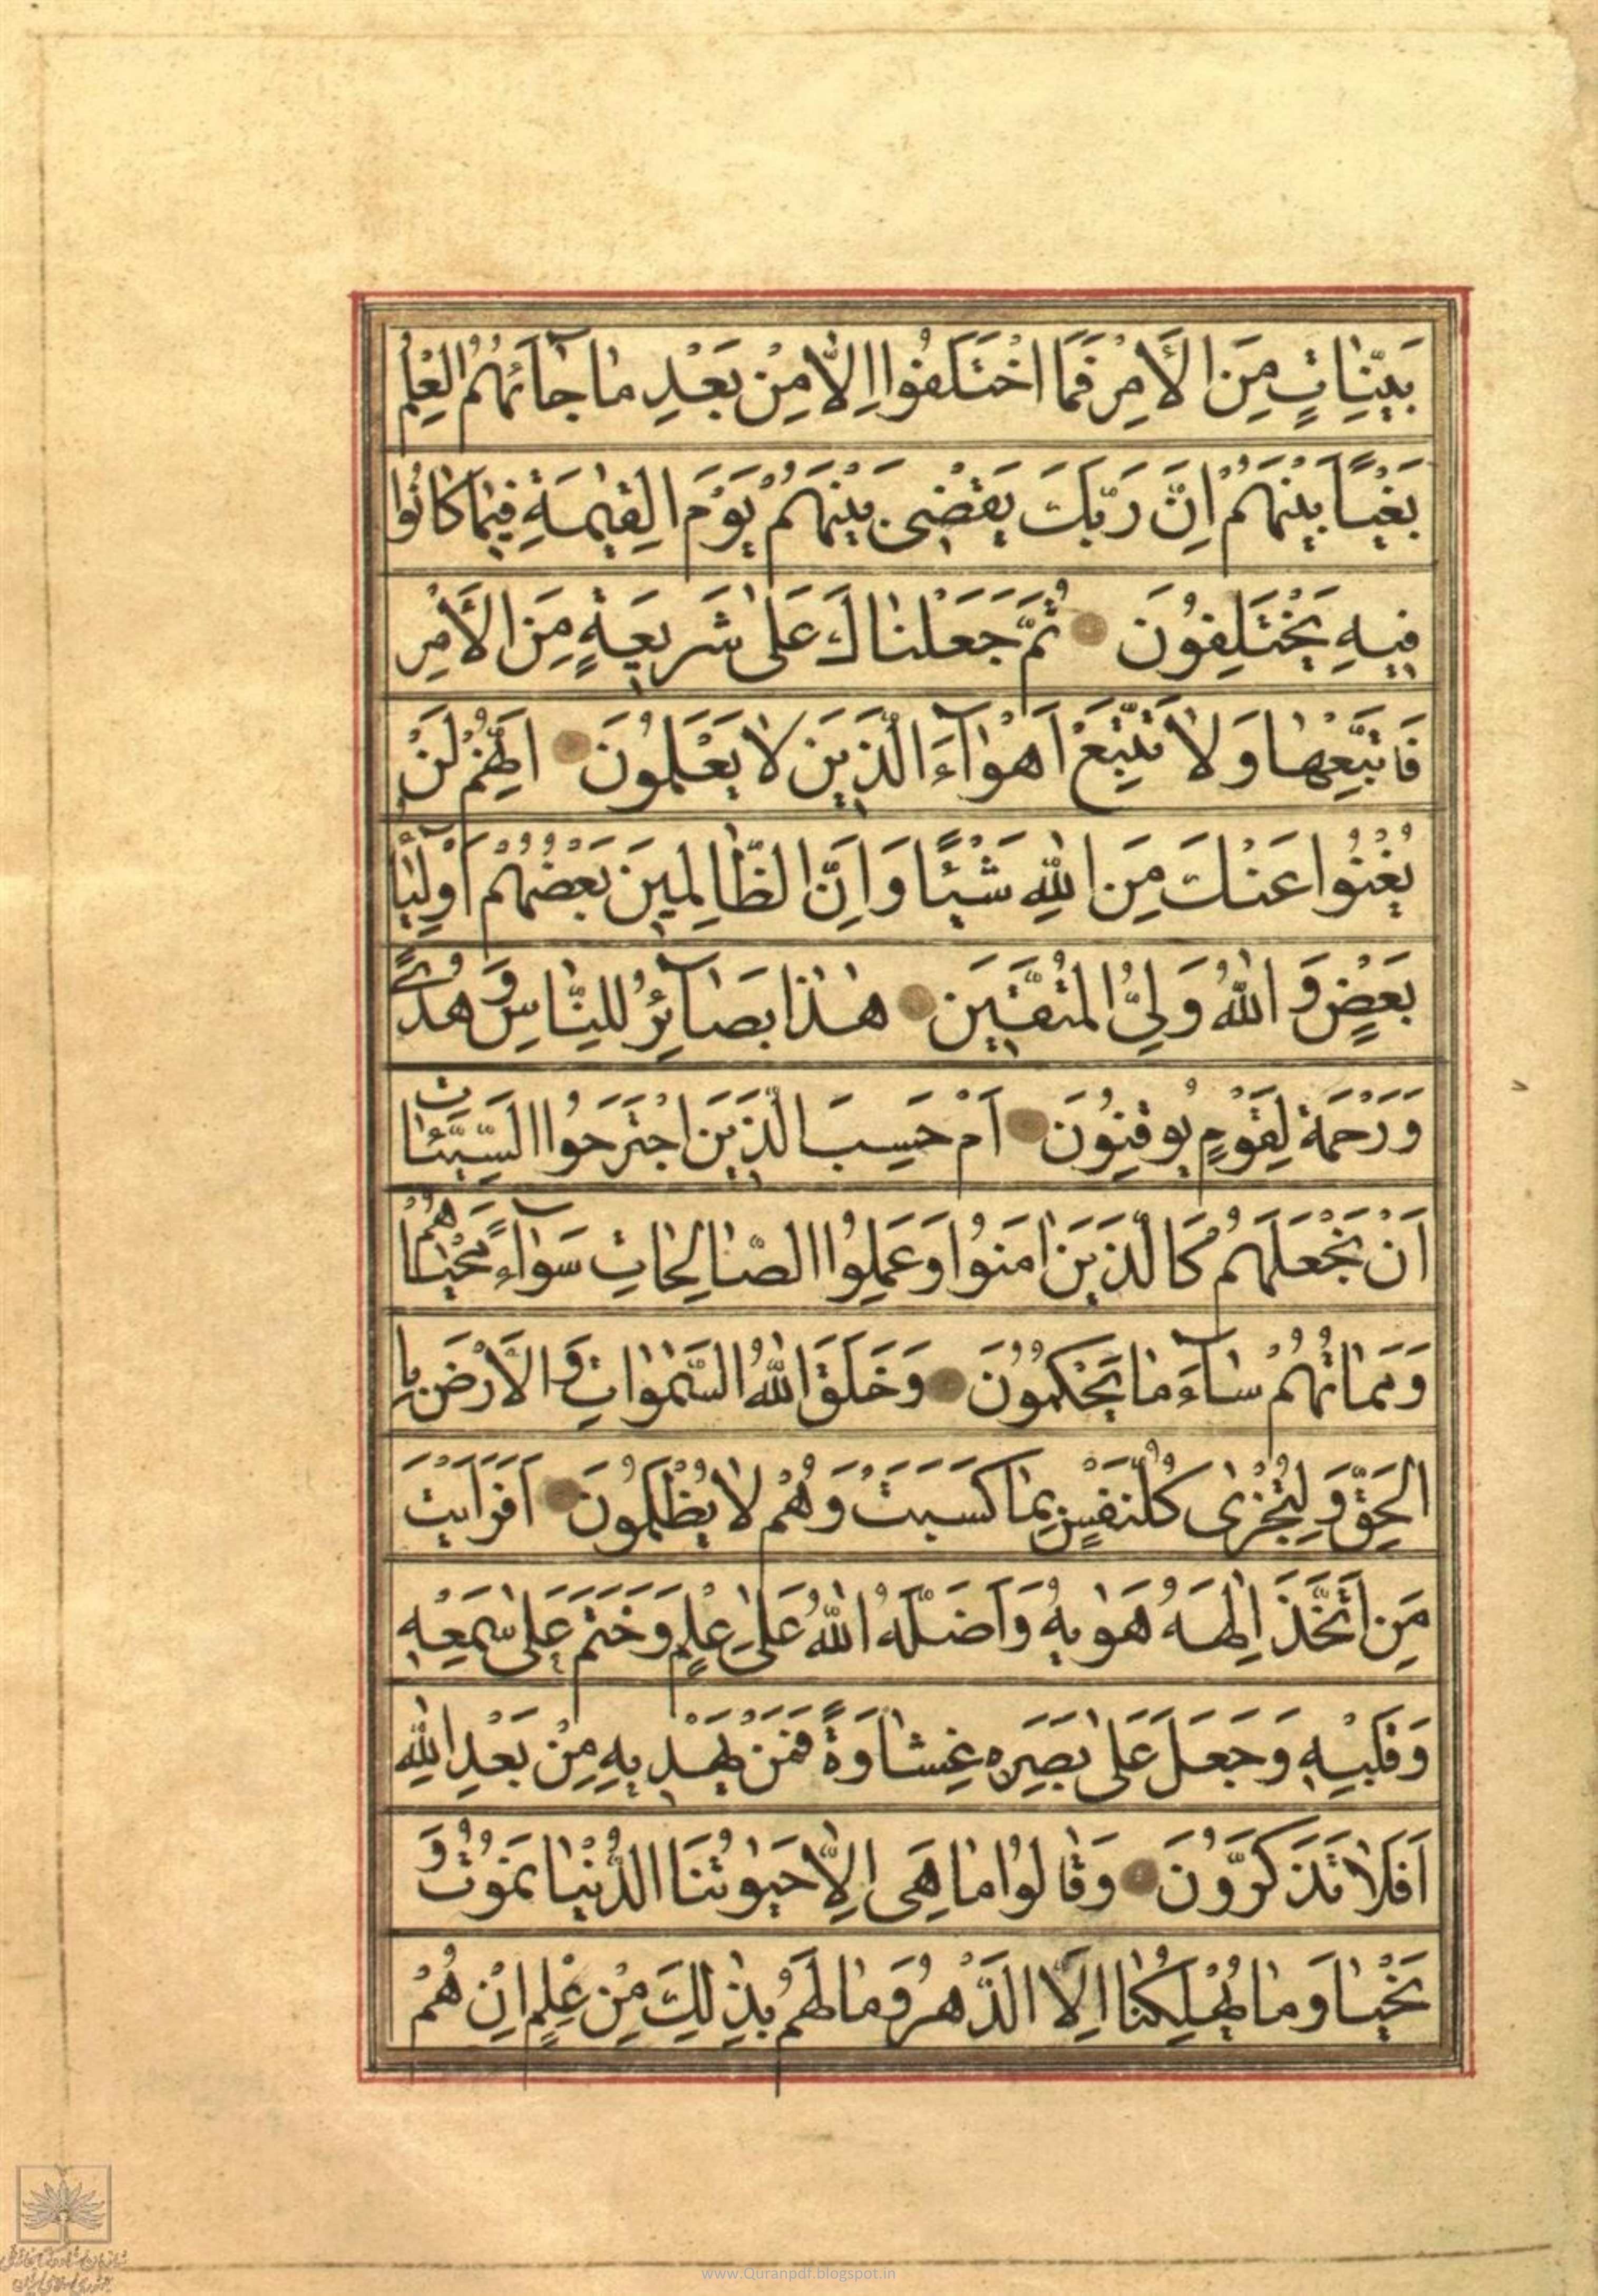 بَيِّنَاتٍ مِنَ الْأَمْرِ فَمَا اخْتَلَفُوا اِلَّا مِنْ بَعْدِ مَا جَآئَهُمُ الْعِلْمُ
بَغْيًا بَيْنَهُمْ اِنَّ رَبَّكَ يَقْضِى بَيْنَهُمْ يَوْمَ الْقِيٰمَةِ فِيمَا كَانُوا
فِيهِ يَخْتَلِفُونَ ثُمَّ جَعَلْنَاكَ عَلٰى شَرِيعَةٍ مِنَ الْأَمْرِ
فَاتَّبِعْهَا وَلَا تَتَّبِعْ اَهْوَآءَ الَّذِينَ لَا يَعْلَمُونَ اِنَّهُمْ لَنْ
يُغْنُوا عَنْكَ مِنَ اللّٰهِ شَيْئًا وَاِنَّ الظَّالِمِينَ بَعْضُهُمْ اَوْلِيَا
بَعْضٍ وَ اللّٰهُ وَلِىُّ الْمُتَّقِينَ هٰذَا بَصَآئِرُ لِلنَّاسِ وَ هُدًى
وَرَحْمَة لِقَوْمٍ يُوقِنُونَ اَمْ حَسِبَ الَّذِينَ اجْتَرَحُوا السَّيِّئَات
اَنْ نَجْعَلَهُمْ كَالَّذِينَ اٰمَنُوا وَعَمِلُوا الصَّالِحَاتِ سَوَآءً مَحْيَاهُمْ
وَمَمَاتُهُمْ سَآءَ مَا يَحْكُمُونَ وَخَلَقَ اللّٰهُ السَّمٰوَاتِ وَ الْأَرْضَ بِا
الْحَقِّ وَ لِتُجْزٰى كُلُّ نَفْسٍ بِمَا كَسَبَتْ وَهُمْ لَا يُظْلَمُونَ اَفَرَاَيْتَ
مَنِ اتَّخَذَ اِلٰهَهُ هَوٰيهُ وَاَضَلَّهُ اللّٰهُ عَلٰى عِلْمٍ وَخَتَمَ عَلٰى سَمْعِهِ
وَقَلْبِهِ وَجَعَلَ عَلٰى بَصَرِهِ غِشَاوَةً فَمَنْ يَهْدِيهِ مِنْ بَعْدِ اللّٰهِ
اَفَلَا تَذَكَّرُونَ وَقَالُوا مَا هِىَ اِلَّا حَيٰوتُنَا الدُّنْيَا نَمُوتُ وَ
نَحْيَا وَمَا يُهْلِكُنَا اِلَّا الدَّهْرُ وَمَا لَهُمْ بِذٰلِكَ مِنْ عِلْمٍ اِنْ هُمْ
www.Quranpdf.blogspot.in